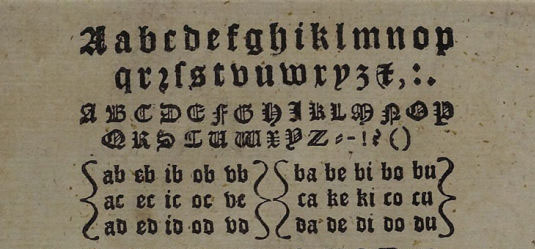 Aabcdefghiklmnop
qrꝛſstvuwxyzꝫ&,:.
ABCDEFGHIKLMNOP
QRSTUWXYZ⸗-!?()
ab eb ib ob vb ba be bi bo bu
ac ec ic oc vc ca ke ki co cu
ad ed id od vd da de di do du